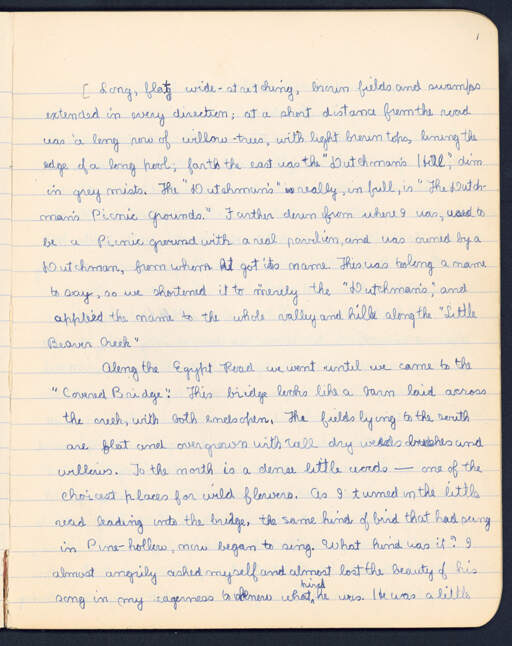 1
[ Long, flat, wide-stretching, brown fields and swamps
extended in every direction; at a short distance from the road
was a long row of willow-trees, with light brown tops, lining the
edge of a long pool; far to the east was the "Dutchman's Hill", dim
in grey mists. The "Dutchman's" really, in full, is "The Dutch-
man's Picnic Grounds." Farther down from where I was, used to
be a Picnic ground with a real pavilion, and was owned by a
Dutchman, from whom it got its name. This was too long a name
to say, so we shortened it to merely the "Dutchman's", and
applied the name to the whole valley and hills along the "Little
Beaver Creek"
Along the Egypt Road we went until we came to the
"Covered Bridge". This bridge looks like a barn laid across
the creek, with both ends open. The fields lying to the south
are flat and overgrown with tall dry weeds bushes and
willows. To the north is a dense little woods — one of the
choicest places for wild flowers. As I turned in the little
road leading into the bridge, the same kind of bird that had sung
in Pine-hollow, now began to sing. What kind was it? I
almost angrily asked myself and almost lost the beauty of his
song in my eagerness to know what kind he was. He was a little